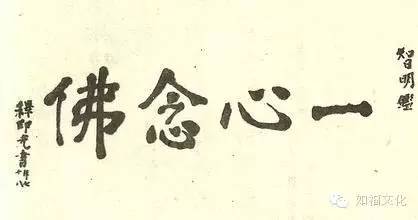 智明鑑
一心念佛
釋印光書
如湘文化